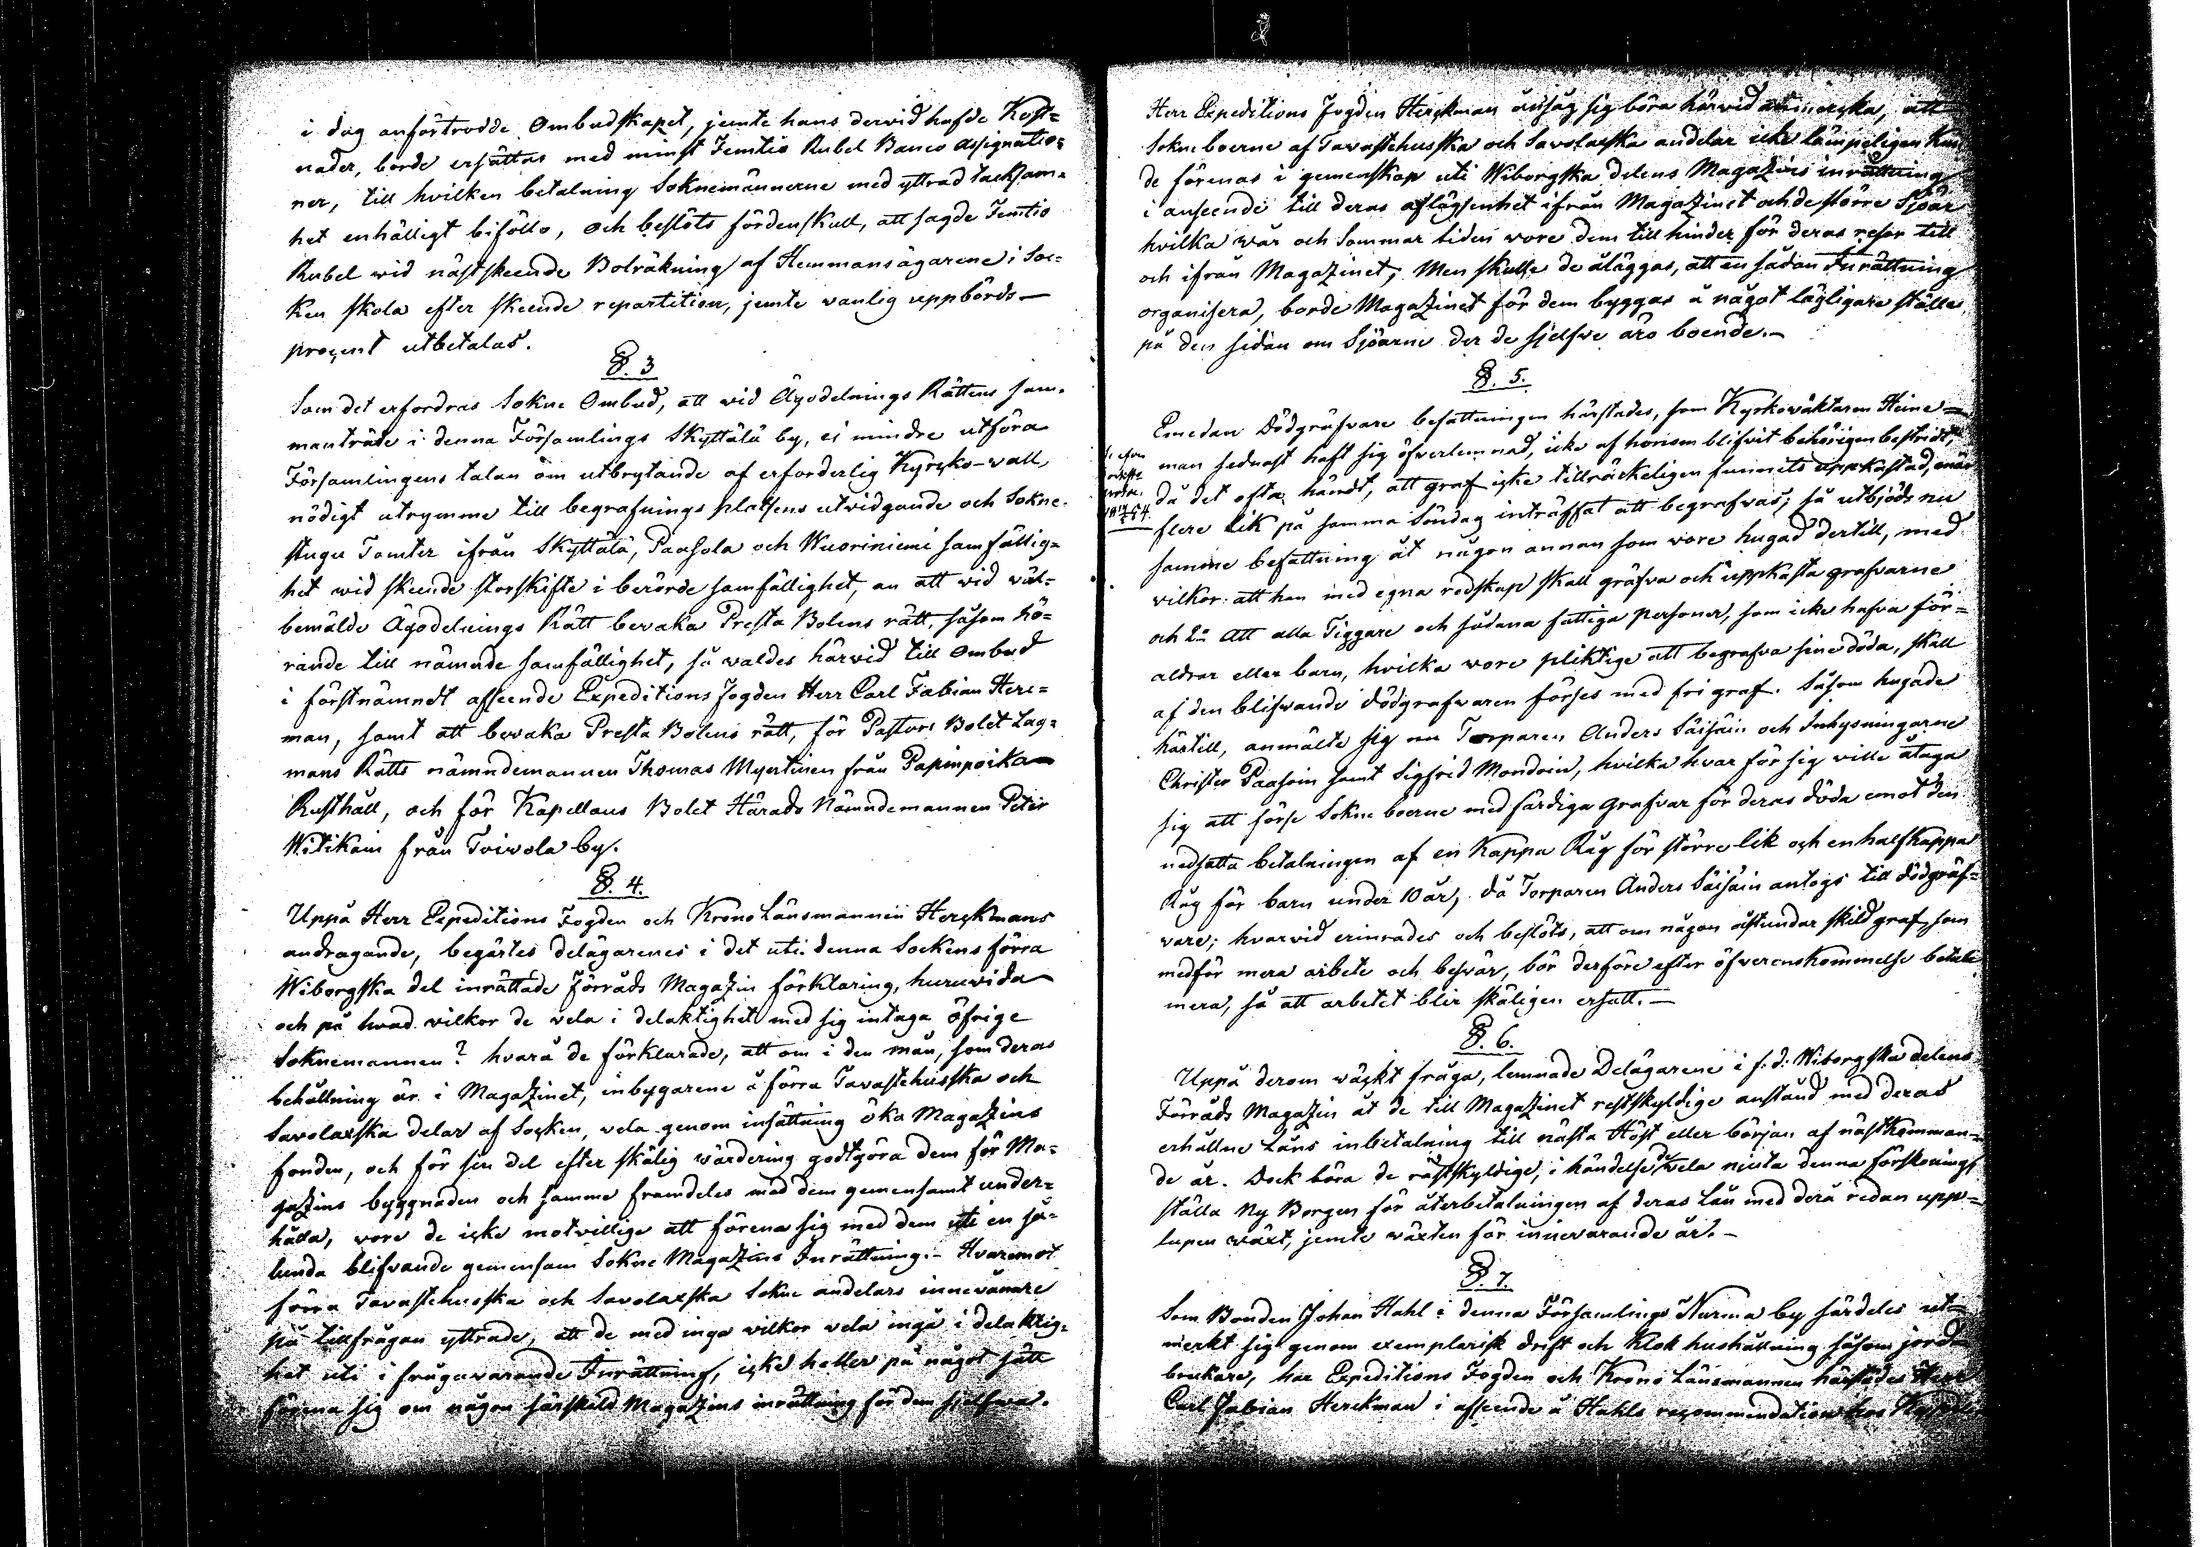 i dag anförtrodde Ombudskapet, jemte hans dervid hafde Kost=
nader, borde ersättas med minst Femtio Rubel Banco Assignatio=
ner, till hvilken betalning Soknemännerne med yttrad tacksam=
het enhälligt biföllo, och beslöts fördenskull, att sagde Femtio
Rubel wid nästskeende Bolräkning af Hemmansägarene i Soc=
ken skola efter skeende repartition, jemte vanlig uppbörds—
procent utbetalas.
§. 3
Som det erfordras Sokne Ombud, att wid Ägodelnings Rättens sam=
manträde i denna Församlings Skyttälä by, ei mindre utföra
Församlingens talan om utbrytande af erforderlig Kyrcko-wall,
nödigt utrymme till begrafnings platsens utvidgande och Sokne-
stugu Tomter ifrån Skyttälä, Paasola och Wuoriniemi samfällig=
het wid skeende storskifte i berörde samfällighet, an att wid wäl=
bemälde Ägodelnings Rätt bevaka Presta Bolens rätt, såsom hö=
rande till nämnde samfällighet, så waldes härwid till Ombud
i förstnämndt afseende Expeditions Fogden Herr Carl Fabian Herc=
man, samt att bevaka Presta Bolens rätt, för Pastors Bolet Lag=
mans Rätts nämndemannen Thomas Myertinen från Papinpoika
Rusthåll, och för Kapellans Bolet Härads Nämndemannen Peter
Witikain från Toivola by.
§. 4.
Uppå Herr Expeditions Fogden och Krono Länsmannen Herckmans
andragande, begärtes delägarenes i det uti denna Sockens förra
Wiborgska del inrättade Förråds Magazin förklaring, huruvida
och på hvad wilkor de vela i delaktighet med sig intaga öfrige
Soknemännen? hvarå de förklarade, att om i den mån, som deras
behållning är i Magazinet, inbygarene å förra Tavastehusska och
Savolaxska delar af Socken, vela genom insättning öka Magazins
fonden, och för sin del efter skälig wärdering godtgöra dem för Ma=
gazins byggnaden och samma framdeles med dem gemensamt under=
hålla, vore de icke motvillige att förena sig med dem uti en så=
lunda blifvande gemensam Sokne Magazins Inrättning.– Hvaremot
förra Tavastehusska och Savolaxska Sokne andelars innevånare
på tillfrågan yttrade, att de med inga wilkor vela ingå i delaktig=
het uti i frågavarande Inrättning, icke heller på något sätt
förena sig om någon särskild Magazins inrättning för dem sjelfva.
Herr Expeditions Fogden Herckman ansåg sig böra härwid anmercka, att
Sokneboerne af Tavastehusska och Savolaxska andelar icke lämpeligen kun
de förenas i gemenskap uti Wiborgska delens Magazins inrättning
i anseende till deras aflägsenhet ifrån Magazinet och de större Sjöar
hvilka wår och Sommar tiden vore dem till hinder för deras resor till
och ifrån Magazinet; Men skulle de åläggas, att en sådan Inrättning
organisera, borde Magazinet för dem byggas å något lägligare ställe,
på den sidan om Sjöarne der de sjelfve äro boende.–
§. 5.
Emedan Dödgräfvare befattningen härstädes, som Kyrkowäktaren Heine=
man sednast haft sig öfverlemnad, icke af honom blifvit behörigen bestridt,
då det ofta händt, att graf icke tillräckeligen funnits uppkastad, när
flere Lik på samma Söndag inträffat att begrafvas; så utbjöds nu
samma befattning åt någon annan som vore hugad dertill, med
vilkor: att han med egna redskap skall gräfva och uppkasta grafvarne
och 2o Att alla Tiggare och sådana fattiga personer, som icke hafva för=
äldrar eller barn, hvilka vore pliktige att begrafva sine döda, skall
af den blifvande Dödgrafvaren förses med fri graf. Såsom hugade
härtill, anmälte sig nu Torparen Anders Säisäin och Inhysningarne
Christer Paasoin samt Sigfrid Mondoin, hvilka hvar för sig ville åtaga
sig att förse Sokneboerne med färdiga Grafvar för deras döda emot den
nedsatta betalningen af en Kappa Råg för större lik och en half kappa
Råg för barn under 10 år, då Torparen Anders Säisäin antogs till dödgräf=
vare; hvarvid erinrades och beslöts, att om någon åstundar skild graf, som
medför mera arbete och besvär, bör derföre efter öfverenskommelse betala
mera, så att arbetet blir skäligen ersatt.–
§. 6.
Uppå derom wäckt fråga, lemnade Delägarene i f. d. Wiborgska delens
Förråds Magazin åt de till Magazinet restskyldige anstånd med deras
erhållne Låns inbetalning till nästa Höst eller början af nästkomman=
de år. Dock böra de restskyldige, i händelse de vela njuta denna förskoning,
ställa ny Borgen för återbetalningen af deras Lån med derå redan upp=
lupen wäxt, jemte wäxten för innevarande år.–
§. 7.
Som Bonden Johan Hahl i denna Församlings Nurma by särdeles ut=
merkt sig genom exemplarisk drift och klok hushållning såsom jord=
brukare, har Expeditions Fogden och Krono Länsmannen härstädes Herr
Carl Fabian Herckman i afseende å Hahls recommendation hos